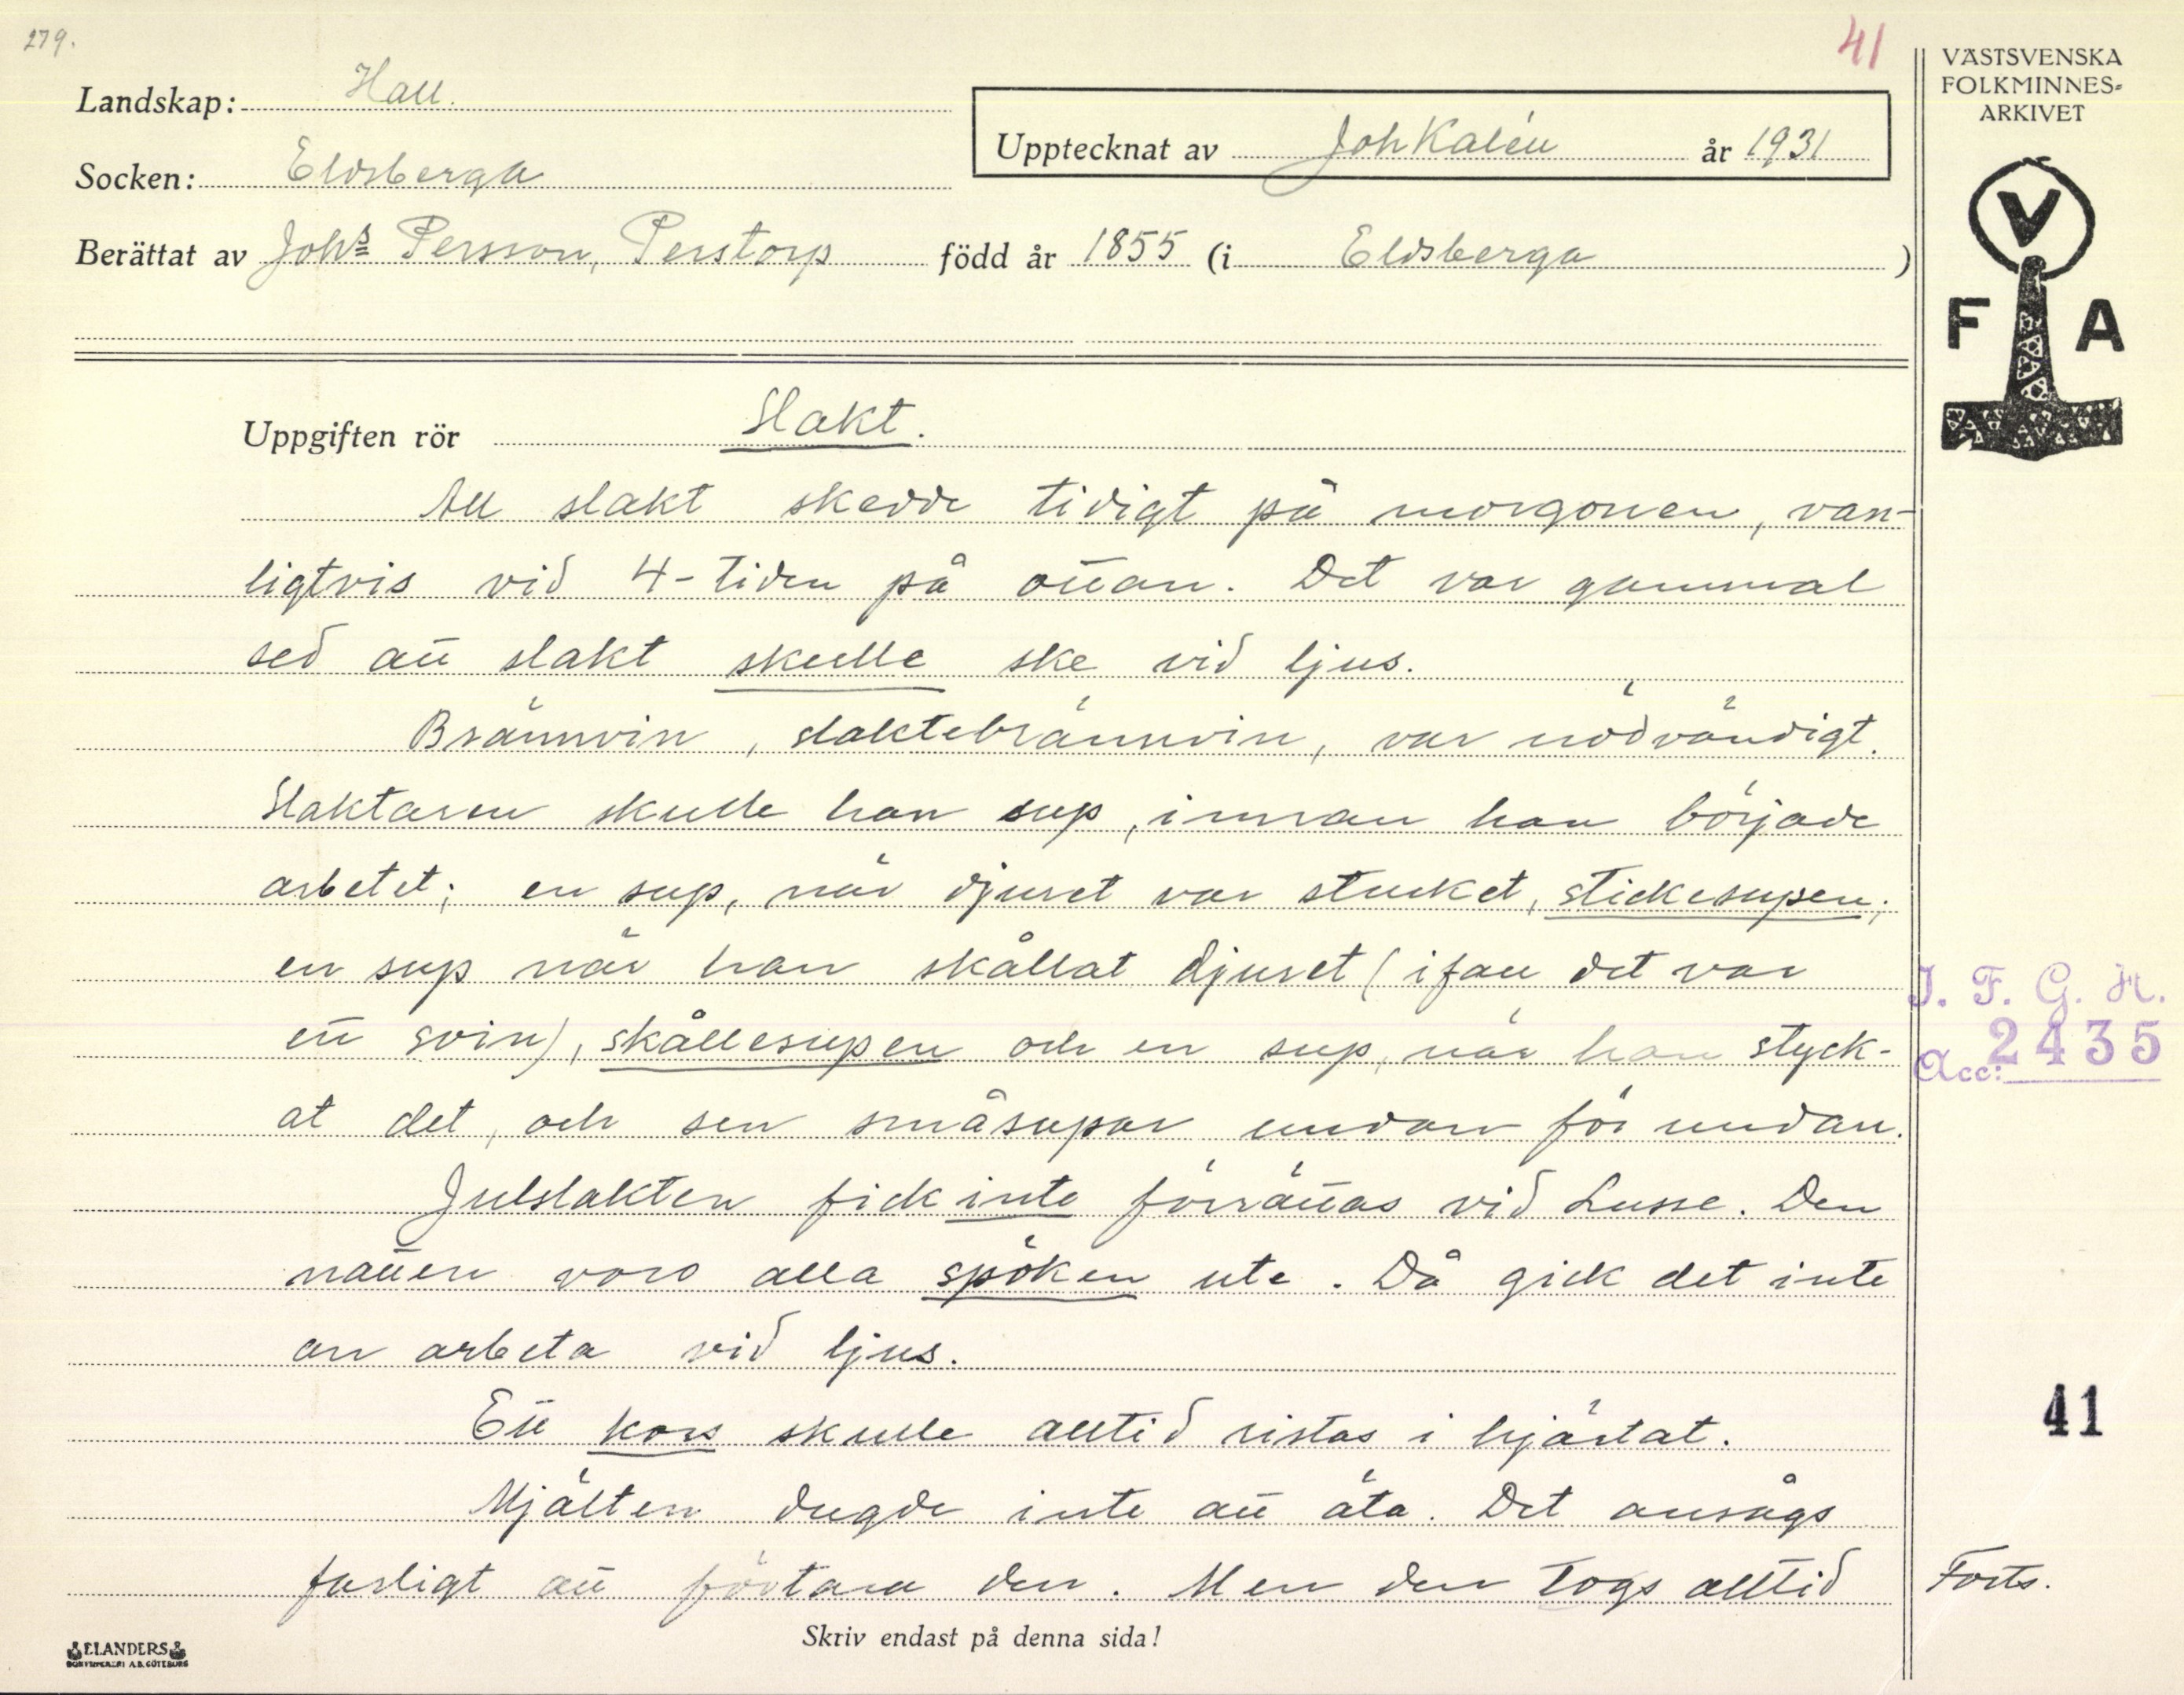 279.
41
Landskap: Hall.
Socken: Eldsberga
Upptecknat av Joh Kalén år 1931
Berättat av Johs Persson, Perstorp född år 1855 (i Eldsberga)
VÄSTSVENSKA
FOLKMINNES-
ARKIVET
V
F A
Uppgiften rör Slakt.
All slakt skedde tidigt på morgonen, van-
ligtvis vid 4-tiden på ottan. Det var gammal
sed att slakt skulle ske vid ljus.
Brännvin, slaktebrännvin, var nödvändigt.
Slaktaren skulle han sup, innan han började
arbetet; en sup, när djuret var stucket, stickesupen;
en sup när han skållat djuret (ifall det var
ett svin), skållesupen och en sup, när han styck-
at det, och sen småsupar undan för undan.
Julslakten fick inte förrättas vid Lusse. Den
natten voro alla spöken ute. Då gick det inte
an arbeta vid ljus.
Ett kors skulle alltid ristas i hjärtat.
Mjälten dugde inte att äta. Det ansågs
farligt att förtära den. Men den togs alltid
Forts.
I. F. G. H.
Acc: 2435
41
Skriv endast på denna sida!
ELANDERS
BOKTRYCKERI A.B. GÖTEBORG